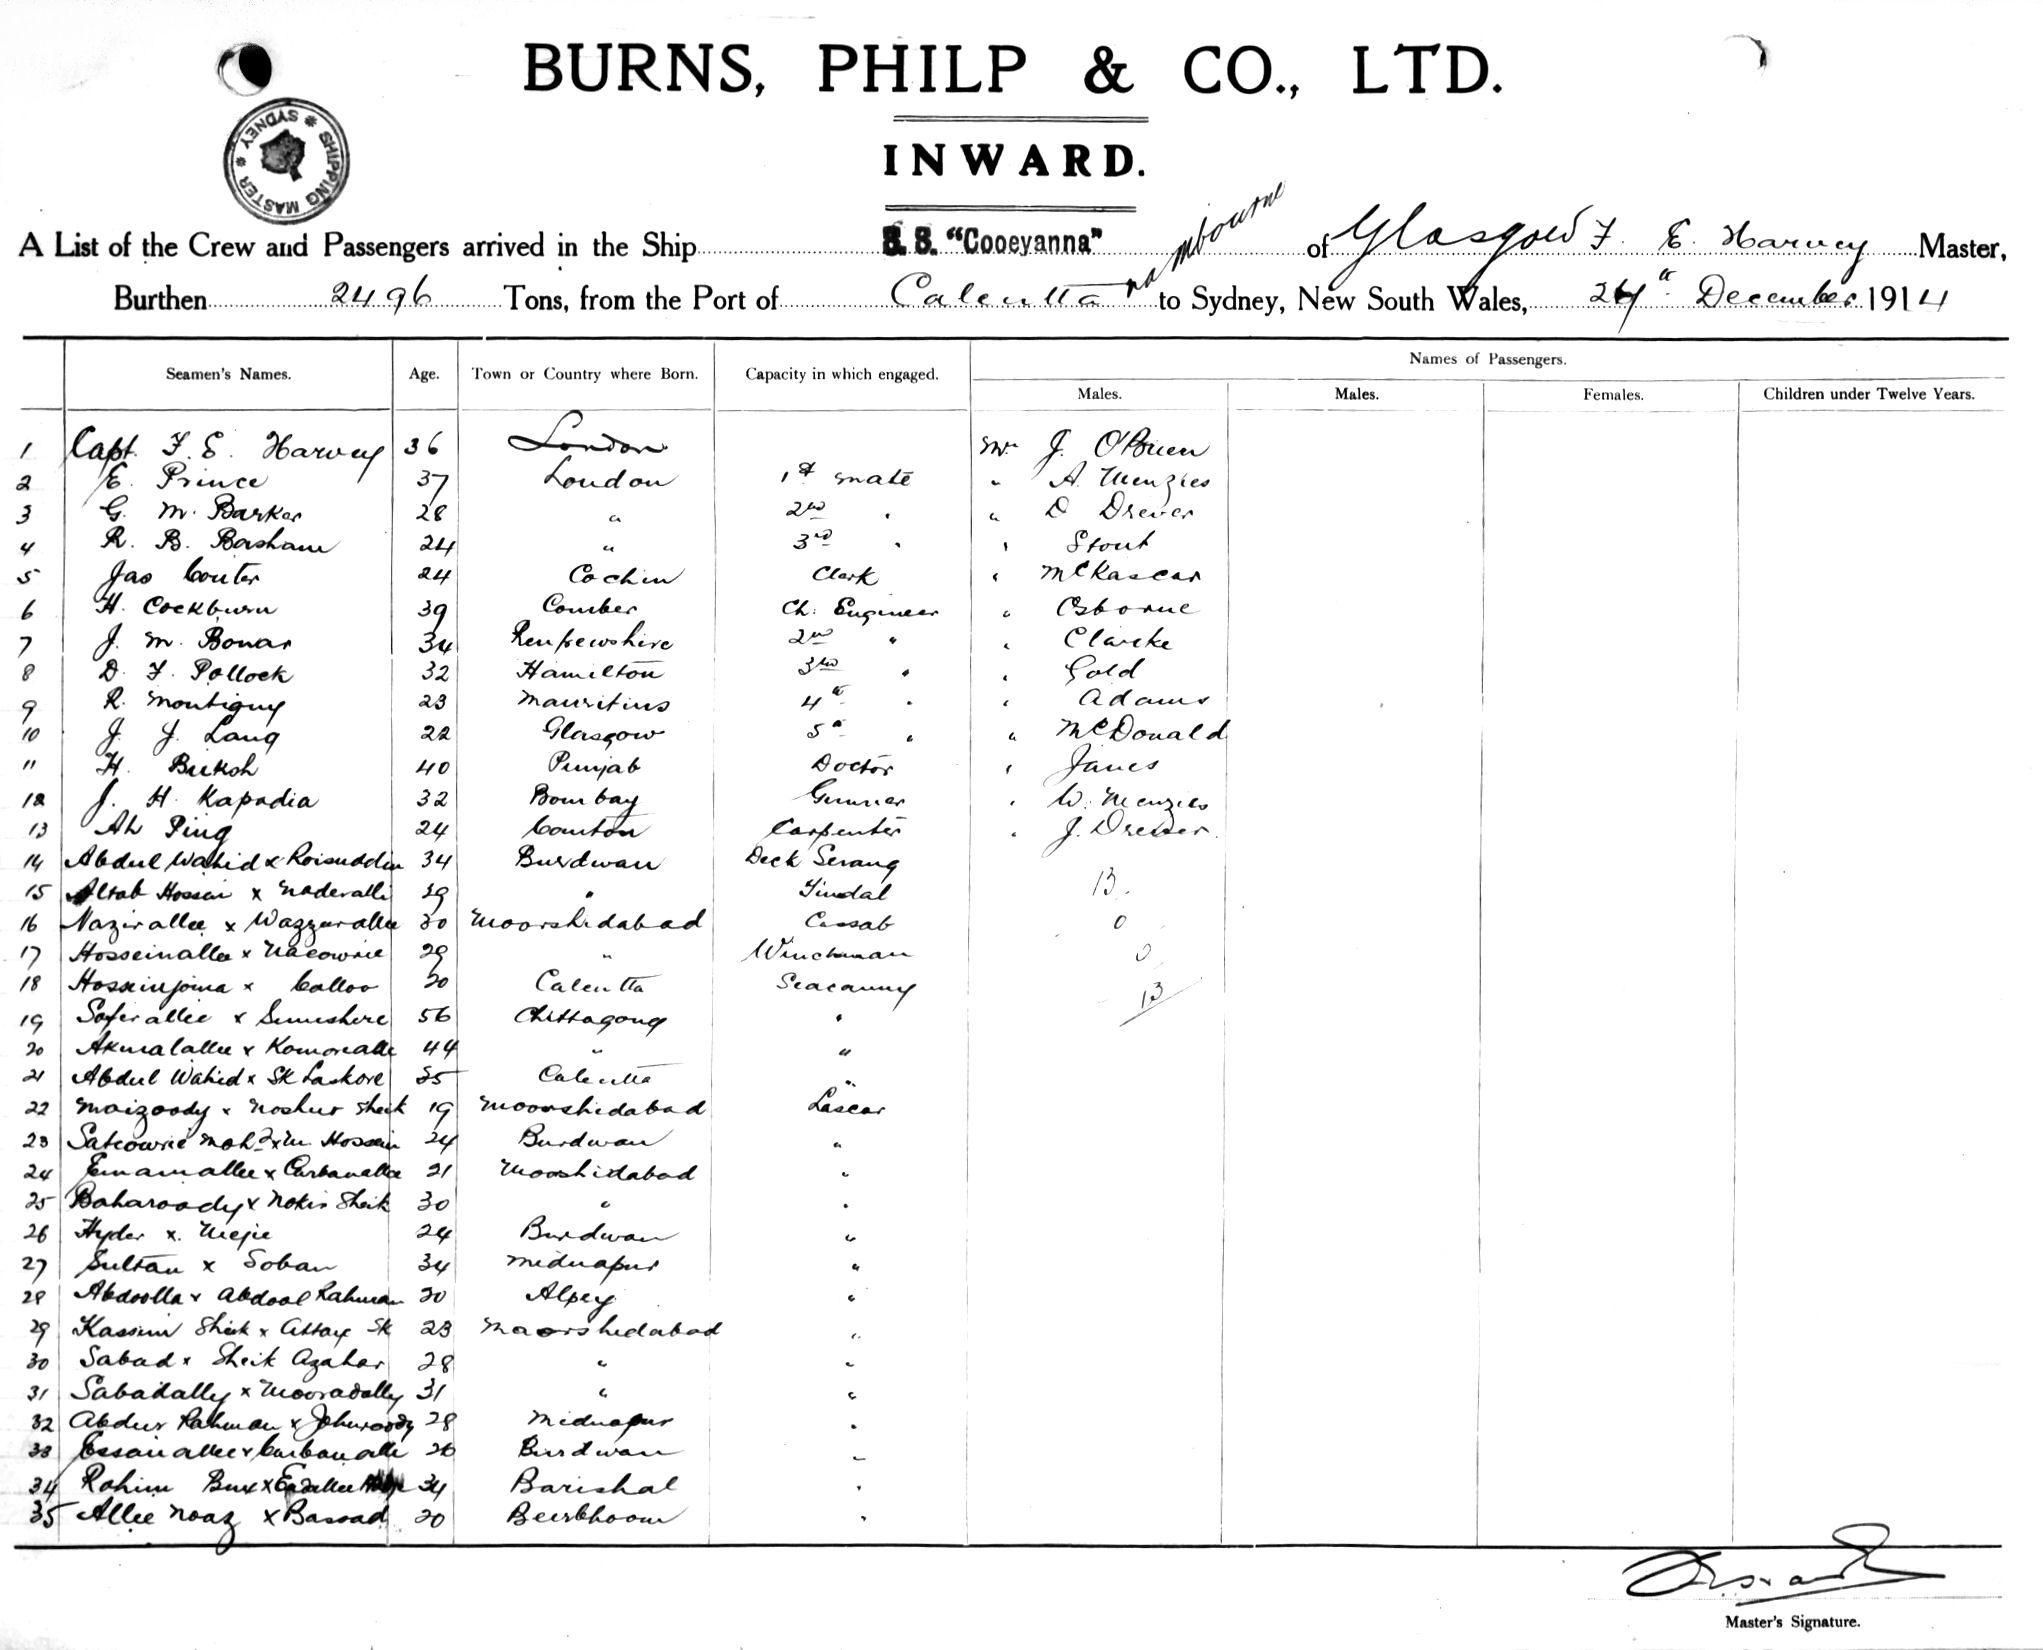 BURNS, PHILP & CO., LTD.
INWARD.
SHIPPING MASTER * SYDNEY *
A List of the Crew and Passengers arrived in the Ship S.S. "Cooeyanna" of Glasgow F. E. Harvey Master,
Burthen 2496 Tons, from the Port of Calcutta via Mbourne to Sydney, New South Wales, 24th December 1914
Names of Passengers.
Seamen's Names. Age. Town or Country where Born. Capacity in which engaged. Males. Males. Females. Children under Twelve Years.
1 Capt. F. E. Harvey 36 London Mr J. O'Brien
2 E. Prince 37 London 1st mate " A. Menzies
3 G. M. Barker 28 " 2nd " " D Drever
4 R. B. Basham 24 " 3rd " " Stout
5 Jas Couter 24 Cochin Clerk " McKascar
6 H. Cockburn 39 Comber Ch. Engineer " Osborne
7 J. M. Bowar 34 Renfrewshire 2nd " " Clarke
8 D. F. Pollock 32 Hamilton 3rd " " Gold
9 R. Montigny 23 Mauritius 4th " " Adams
10 J. J. Lang 22 Glasgow 5th " " McDonald
11 H. Buksh 40 Punjab Doctor " Janes
12 J. H. Kapadia 32 Bombay Gunner " W. Menzies
13 Ah Ping 24 Canton Carpenter " J. Drever
14 Abdul Wahid x Roisuddin 34 Burdwan Deck Serang
15 Altab Hossein x Naderalli 29 " Tindal 13
16 Nazirallee x Wazzurallee 30 Moorshidabad Cassab 0
17 Hosseinallee x Nacowrie 29 " Winchman 0
18 Hosseinjoma x Calloo 30 Calcutta Seacunny 13
19 Soferallee x Sumshere 56 Chittagong "
20 Akmalallee x Komoralle 44 " "
21 Abdul Wahid x Sk Laskore 35 Calcutta "
22 Moizoody x Noshur Sheik 19 Moorshidabad Lascar
23 Satcowrie Mohd x M. Hossein 24 Burdwan "
24 Emamallee x Curbanallee 21 Moorshidabad "
25 Baharoody x Nokir Sheik 30 " "
26 Hyder x Mejie 24 Burdwan "
27 Sultan x Soban 34 Midnapur "
28 Abdoolla x Abdool Rahman 30 Alpey "
29 Kassim Sheik x Attay Sk 23 Moorshidabad "
30 Sabad x Sheik Azahar 28 " "
31 Sabadally x Mooradally 31 " "
32 Abdur Rahman x Johuroody 28 Midnapur "
33 Essanallee x Curbanalle 26 Burdwan "
34 Rohim Bux x Eadallee 34 Barishal "
35 Allee Noaz x Bassad 20 Beerbhoom "
Master's Signature.